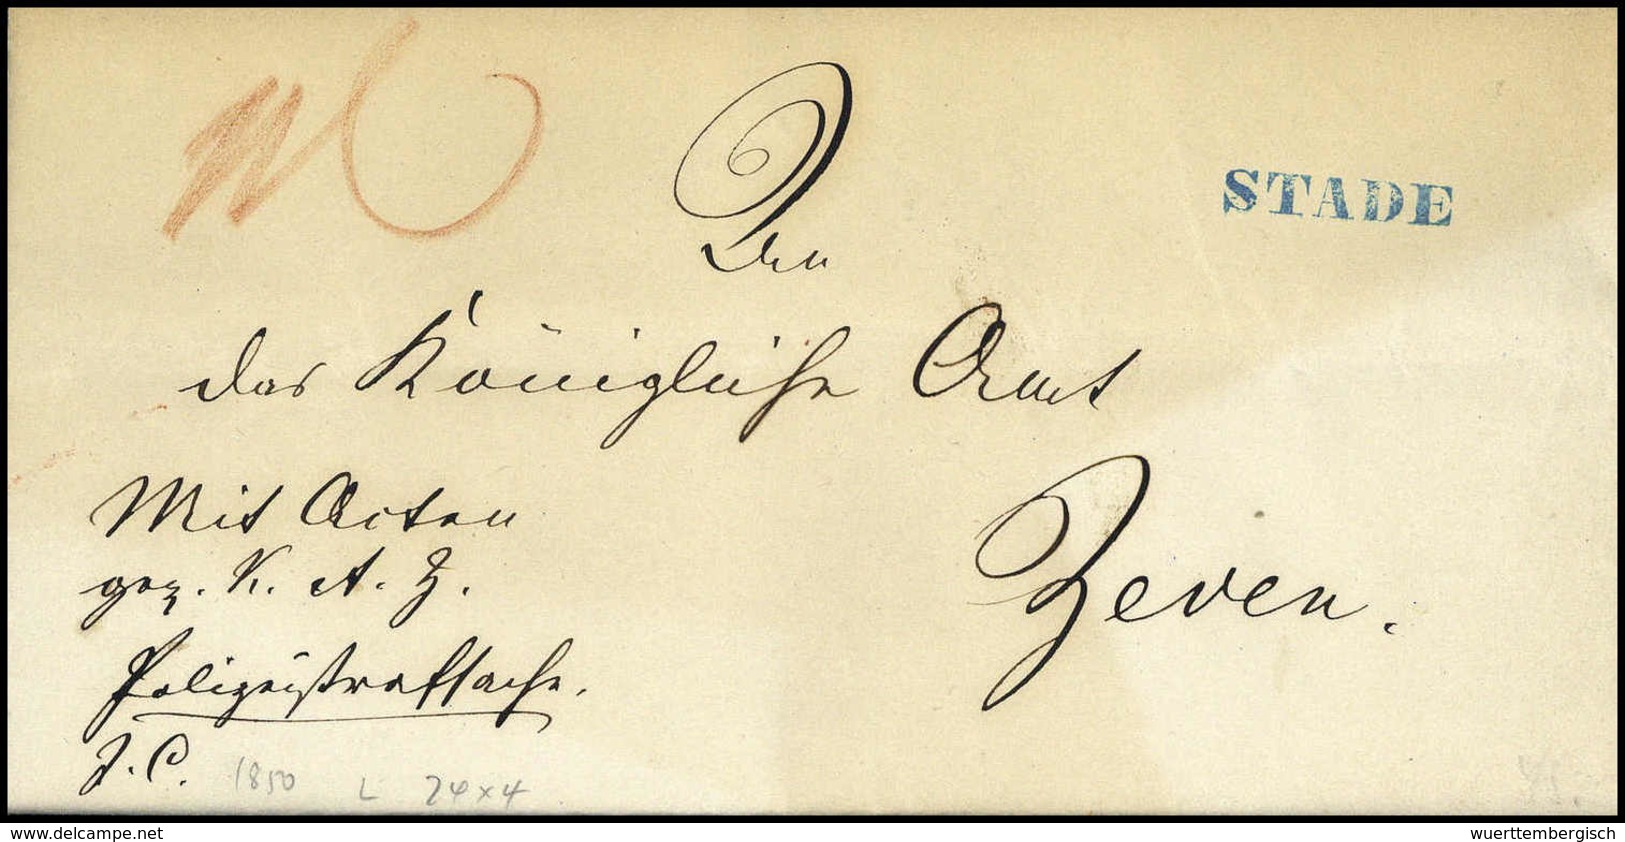 STADE
An
das Königliche Amt
Zeven.
Mit Acten
gez. K. A. Z.
Polizeistrafsache.
J. C.
1850 L 24 x 4
www.delcampe.net
wuerttembergisch